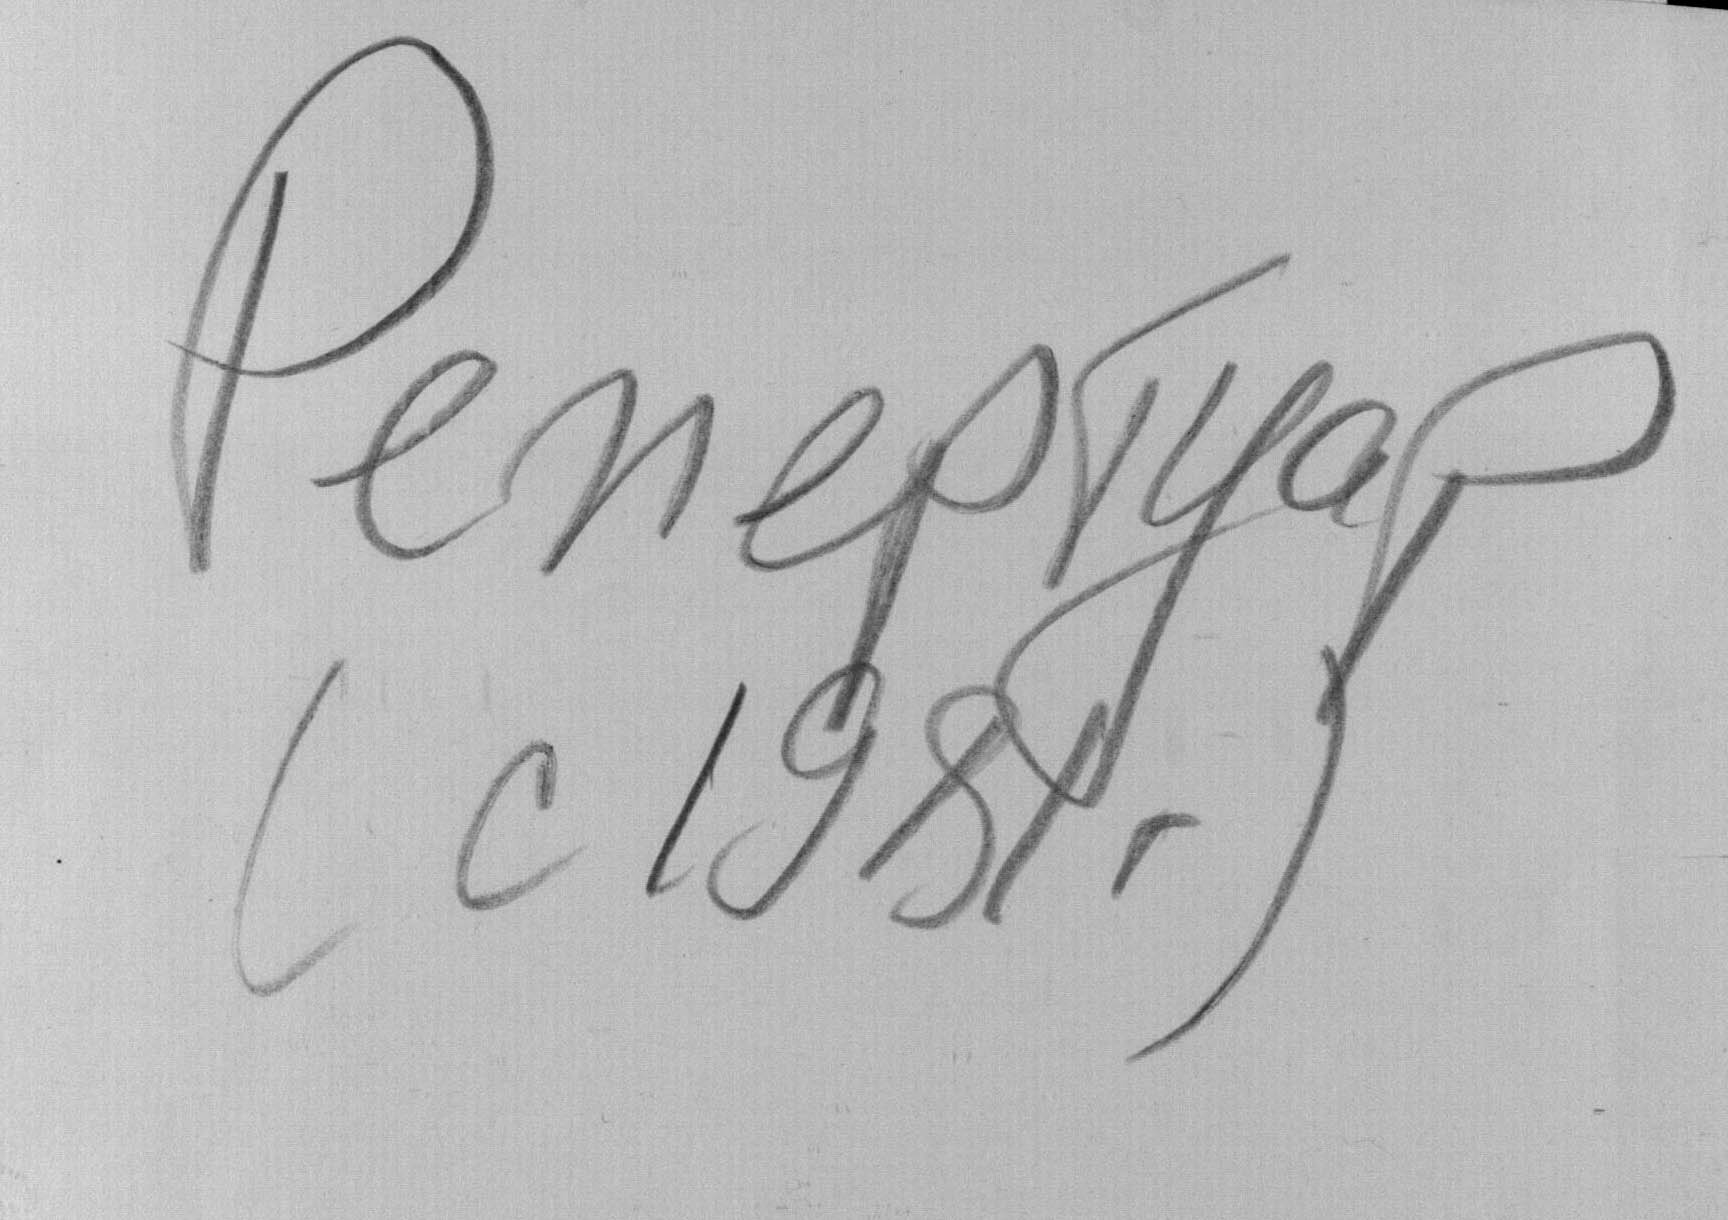 Репертуар
(с 1981 г.)